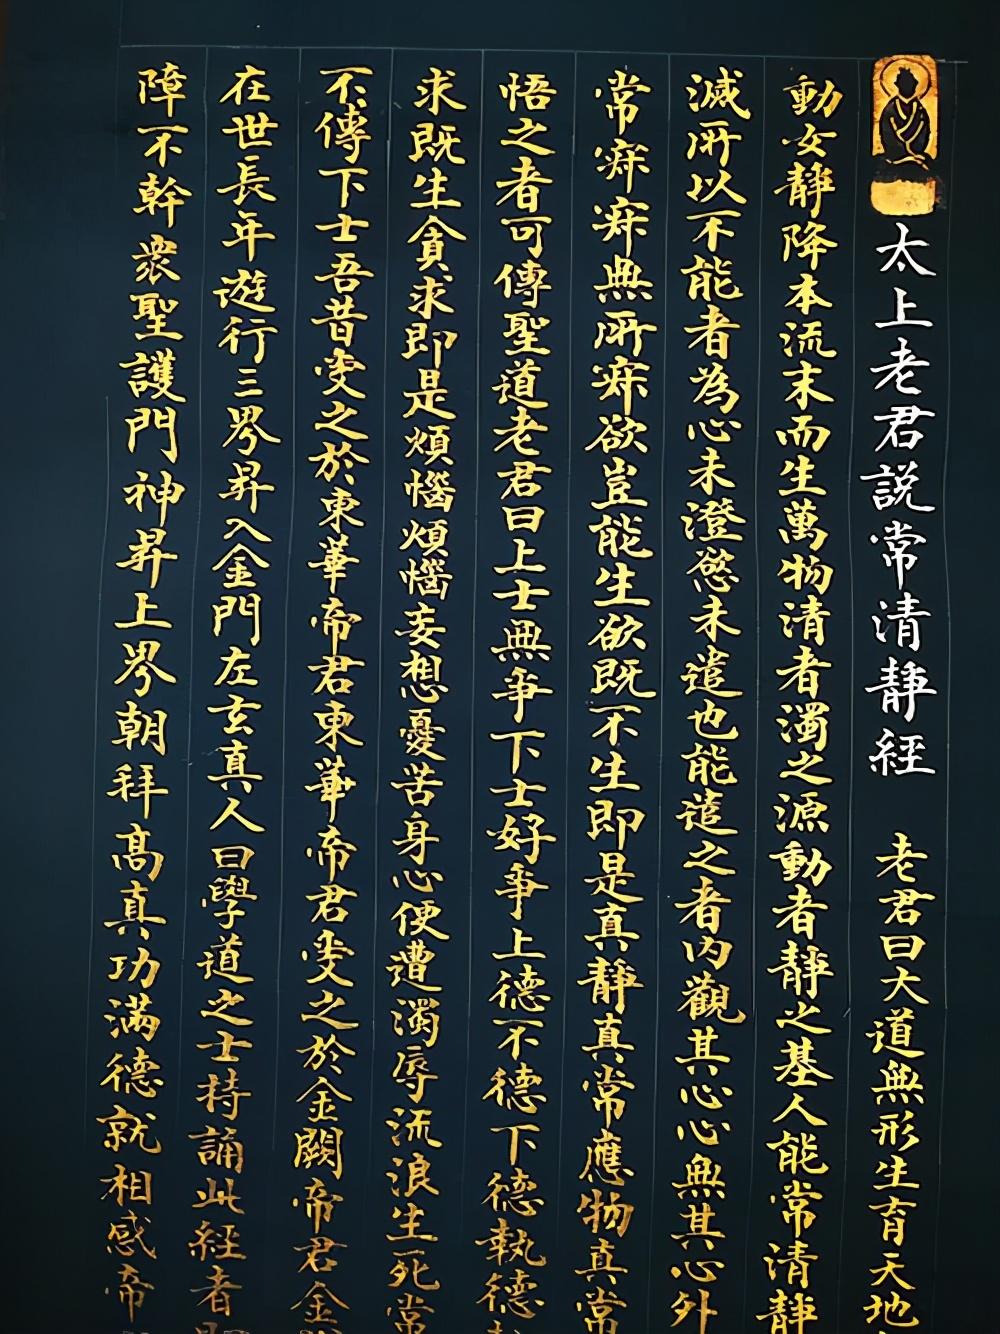 太上老君説常清靜經 老君曰大道無形生育天地
動女靜降本流末而生萬物清者濁之源動者靜之基人能常清靜
滅所以不能者為心未澄慾未遣也能遣之者內觀其心心無其心外
常寂寂無所寂欲豈能生欲既不生即是真靜真常應物真常
悟之者可傳聖道老君曰上士無爭下士好爭上德不德下德執德
求既生貪求即是煩惱煩惱妄想憂苦身心便遭濁辱流浪生死常
不傳下士吾昔受之於東華帝君東華帝君受之於金闕帝君金
在世長年遊行三界昇入金門左玄真人曰學道之士持誦此經者
障不幹衆聖護門神昇上界朝拜高真功滿德就相感帝